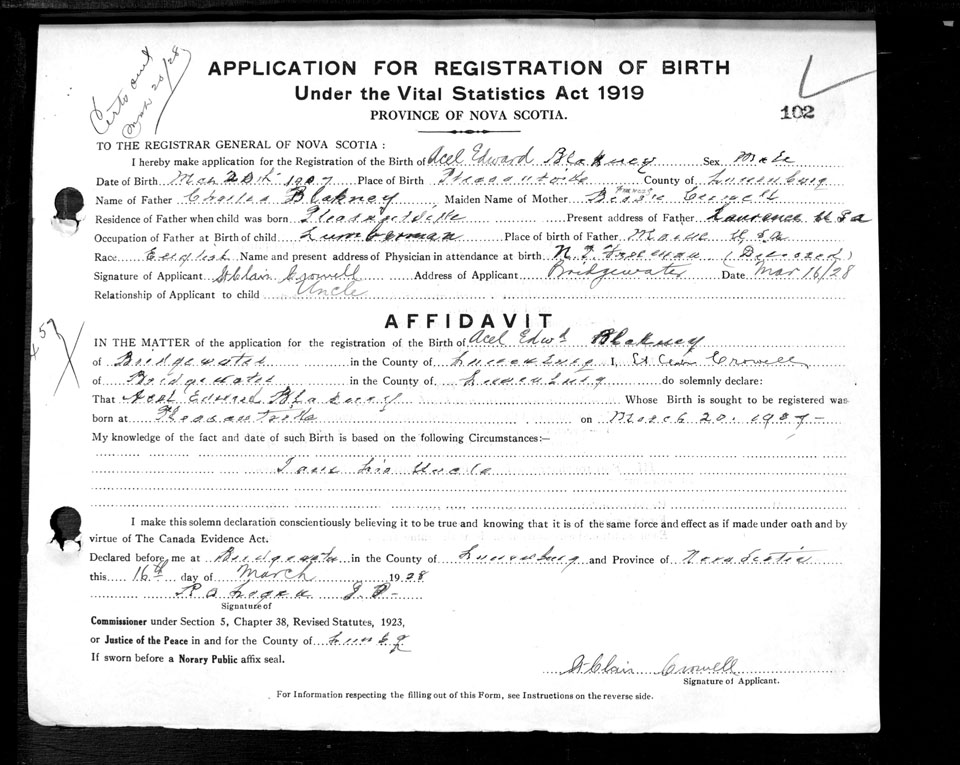 Certo out
Mch 20/28
APPLICATION FOR REGISTRATION OF BIRTH
Under the Vital Statistics Act 1919
PROVINCE OF NOVA SCOTIA.
102
TO THE REGISTRAR GENERAL OF NOVA SCOTIA :
I hereby make application for the Registration of the Birth of Acel Edward Blakney Sex Male
Date of Birth Mch 20th 1907 Place of Birth County of Lunenburg
Name of Father Charles Blakney Maiden Name of Mother Bessie Frances Crowell
Residence of Father when child was born Present address of Father Laurence U S a
Occupation of Father at Birth of child Lumberman Place of birth of Father Maine U S a
Race English Name and present address of Physician in attendance at birth N. F. Freeman (Deceased)
Signature of Applicant St Clair Crowell Address of Applicant Bridgewater Date Mar 16/28
Relationship of Applicant to child Uncle
AFFIDAVIT
457
IN THE MATTER of the application for the registration of the Birth of Acel Edwd Blakney
of Bridgewater in the County of Lunenburg I, St Clair Crowell
of Bridgewater in the County of Lunenburg do solemnly declare:
That Acel Edward Blakney Whose Birth is sought to be registered was
born at on March 20. 1907-
My knowledge of the fact and date of such Birth is based on the following Circumstances:—
I am his Uncle
I make this solemn declaration conscientiously believing it to be true and knowing that it is of the same force and effect as if made under oath and by
virtue of The Canada Evidence Act.
Declared before me at Bridgewater in the County of Lunenburg and Province of Nova Scotia
this 16th day of March 1928
R O Logan J P-
Signature of
Commissioner under Section 5, Chapter 38, Revised Statutes, 1923,
or Justice of the Peace in and for the County of
If sworn before a Norary Public affix seal.
St Clair Crowell
Signature of Applicant.
For Information respecting the filling out of this Form, see Instructions on the reverse side.